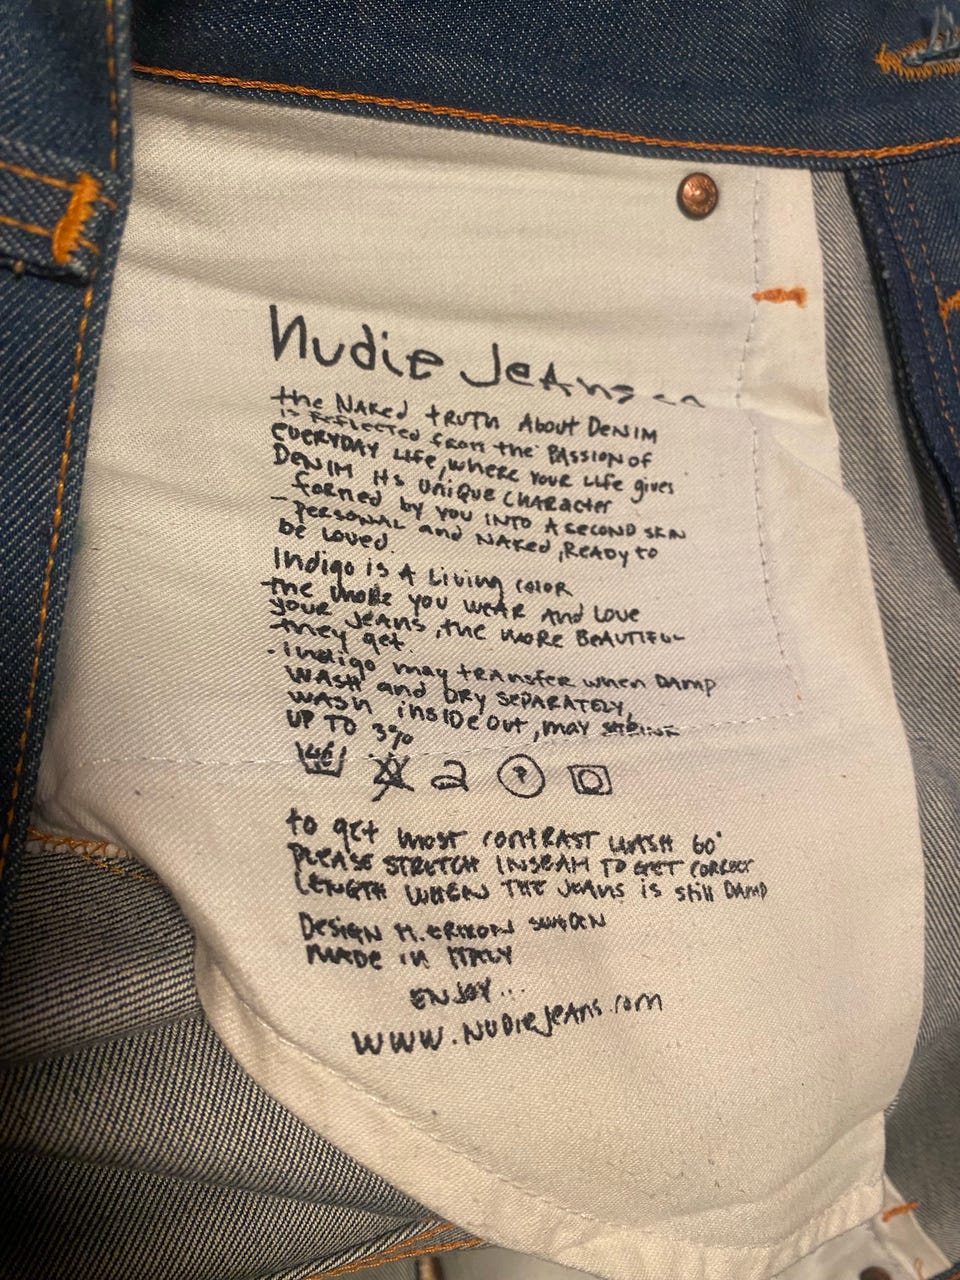 Nudie Jeans co
the NAKed tRUTH About DeNIM
is ReFLECTED from the PASSION of
EVERYDAY LIFE, where YOUR Life gives
DENIM its UNIQUE CHARACTER
formed by you INTO A SECOND SKIN
- PERSONAL and NAKED, READY to
be Loved.
Indigo is A Living COLOR
the more you WEAR AND LOVE
YOUR JEANS, the MORE BEAUTIFUL
they get.
. Indigo may tRANSFER when DAMP
WASH and DRY SEPARATELY,
WASH INSIDE OUT, MAY SHRINK
UP TO 3%
to get MOST CONTRAST WASH 60°
PLEASE STRETCH INSEAM TO GET CORRECT
LENGTH WHEN THE JEANS is still DAMP
DESIGN M. ERIXON SWEDEN
MADE in ITALY
ENJOY...
WWW.NUDIEJEANS.com